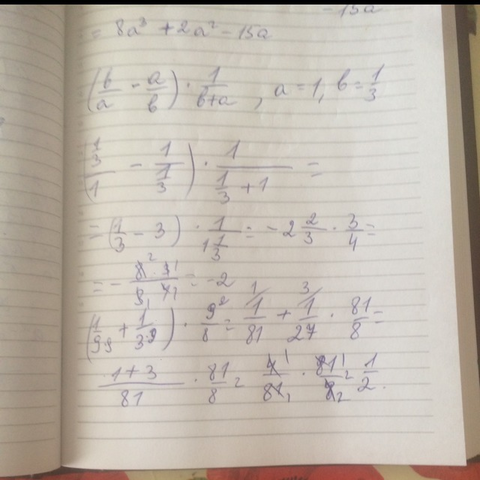 -15a
= 8a³ + 2a² - 15a
(b/a - a/b) · 1/(b+a), a = 1, b = 1/3
((1/3)/1 - 1/(1/3)) · 1/(1/3 + 1) =
= (1/3 - 3) · 1/(1 1/3) = -2 2/3 · 3/4 =
= - (8² · 3¹)/(3₁ 4₁) = -2
(1/9⁹ + 1/3⁹) · 9²/8 = 1/81 + 1/27 · 81/8 =
(1+3)/81 · 81/8 = 4¹/81₁ · 81¹/8₂ = 1/2.